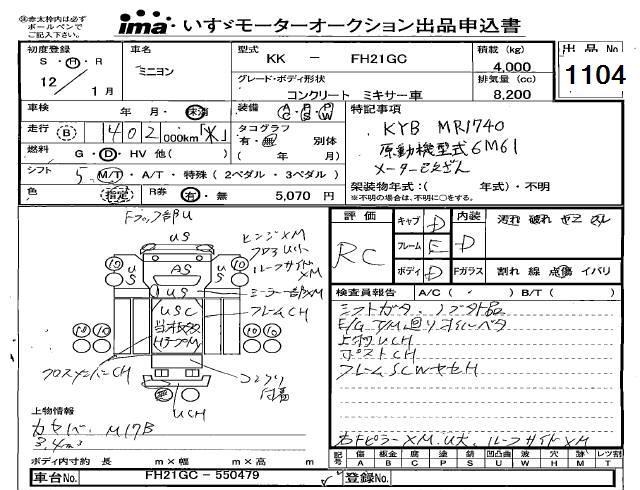 ※赤太枠内は必ず
ボールペンで
ご記入下さい。
ima いすゞモーターオークション出品申込書
初度登録
S・H・R
12 / 1月
車名
ミニヨン
型式
KK － FH21GC
グレード・ボディ形状
コンクリート ミキサー車
積載 (kg)
4,000
排気量 (cc)
8,200
出品 No
1104
車検 年・月・抹消
装備 A/C P/S P/W
走行 B 402 000km
タコグラフ
有・無 別体
( 年 月)
燃料 G・D・HV 他( )
シフト 5 M/T・A/T・特殊 ( 2ペダル・3ペダル )
色 指定 R券 有・無 5,070 円
特記事項
KYB MR1740
原動機型式6M61
メーター
架装物年式:( 年式)・不明
※不明の場合は、不明に○をする。
評価
RC
キャブ D
フレーム E
ボディ D
内装
D
Fガラス
汚れ 破れ
割れ 線 点傷 イバリ
Fフック部U
US
ヒンジXM
ルーフサイドXM
ミラー部XM
フレームCH
AS
US
US
US
USC
10
10
10
10
クロスメンバーCH
UCH
コンクリ付着
検査員報告 A/C ( ・ ) B/T ( )
シフトガタ、
E/G T/M回りオイルベタ
上物UCH
ポストCH
フレームSCWヤセH
右FピラーXM.U大、ルーフサイドXM
上物情報
カヤバ M17B
3.4m3
ボディ内寸約 長 m×幅 m×高 m
記号 傷A 板金B 腐C 塗P 錆S 凹凸曲U 波W 穴H 跡M レツ割T
車台No. FH21GC－550479
登録No.